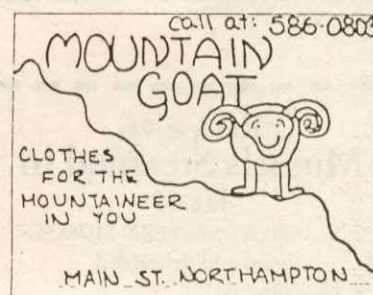 call at: 586-0803
MOUNTAIN
GOAT
CLOTHES
FOR THE
MOUNTAINEER
IN YOU
MAIN ST. NORTHAMPTON